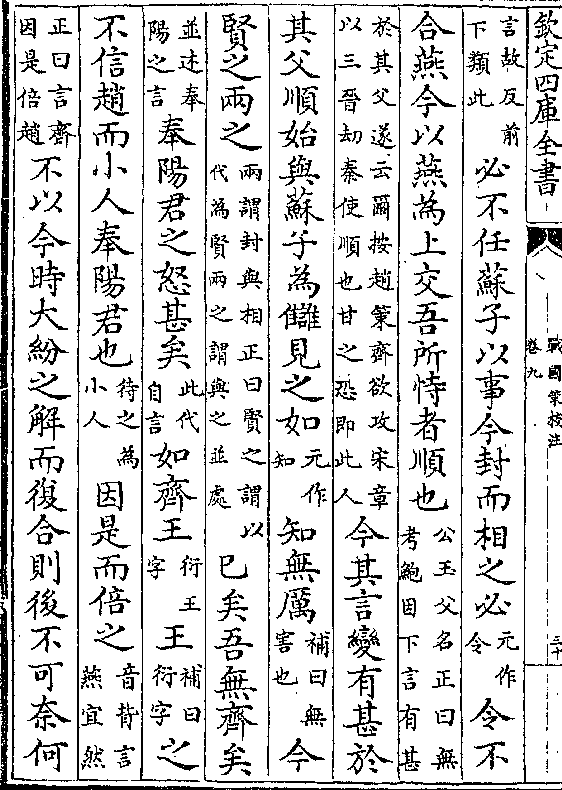 欽定四庫全書
戰國策校注
卷九
三十
言故反前下類此必不任蘇子以事今封而相之必元作令令不
合燕今以燕為上交吾所恃者順也公玉父名正曰無考鮑因下言有甚
於其父遂云爾按趙策齊欲攻宋章以三晉劫秦使順也甘之恐即此人今其言變有甚於
其父順始與蘇子為讎見之如元作知知無厲補曰無害也今
賢之兩之兩謂封與相正曰賢之謂以代為賢兩之謂與之並處巳矣吾無齊矣
並述奉陽之言奉陽君之怒甚矣此代自言如齊王衍王字王補曰衍字之
不信趙而小人奉陽君也待之為小人因是而倍之音背言燕宜然
正曰言齊因是倍趙不以今時大紛之解而復合則後不可奈何